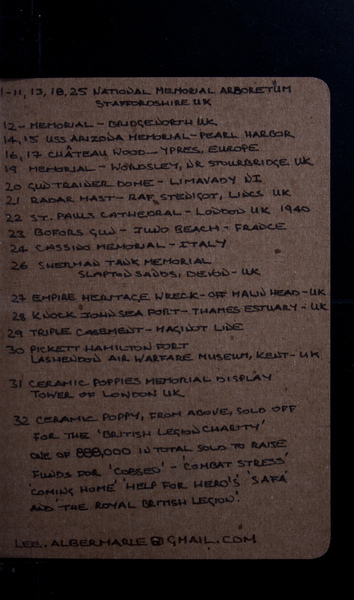 1-11, 13, 18, 25 NATIONAL MEMORIAL ARBORETUM
STAFFORDSHIRE UK
12 - MEMORIAL - BRIDGENORTH UK
14, 15 USS ARIZONA MEMORIAL - PEARL HARBOR
16, 17 CHÂTEAU WOOD - YPRES, EUROPE
19 MEMORIAL - WORDSLEY, NR STOURBRIDGE UK
20 GUN TRAINER DOME - LIMAVADY NI
21 RADAR MAST - RAF STENIGOT, LINCS UK
22 ST. PAULS CATHEDRAL - LONDON UK 1940
23 BOFORS GUN - JUNO BEACH - FRANCE
24 CASSINO MEMORIAL - ITALY
26 SHERMAN TANK MEMORIAL
SLAPTON SANDS, DEVON - UK
27 EMPIRE HERITAGE WRECK - OFF MALIN HEAD - UK
28 KNOCK JOHN SEA FORT - THAMES ESTUARY - UK
29 TRIPLE CASEMENT - MAGINOT LINE
30 PICKETT HAMILTON FORT
LASHENDON AIR WARFARE MUSEUM, KENT - UK
31 CERAMIC POPPIES MEMORIAL DISPLAY
TOWER OF LONDON UK
32 CERAMIC POPPY, FROM ABOVE, SOLD OFF
FOR THE 'BRITISH LEGION CHARITY'
ONE OF 888,000 IN TOTAL SOLD TO RAISE
FUNDS FOR 'COBSEO' - 'COMBAT STRESS'
'COMING HOME' 'HELP FOR HERO'S' 'SAFA'
AND 'THE ROYAL BRITISH LEGION'.
LEE.ALBERMARLE@GMAIL.COM